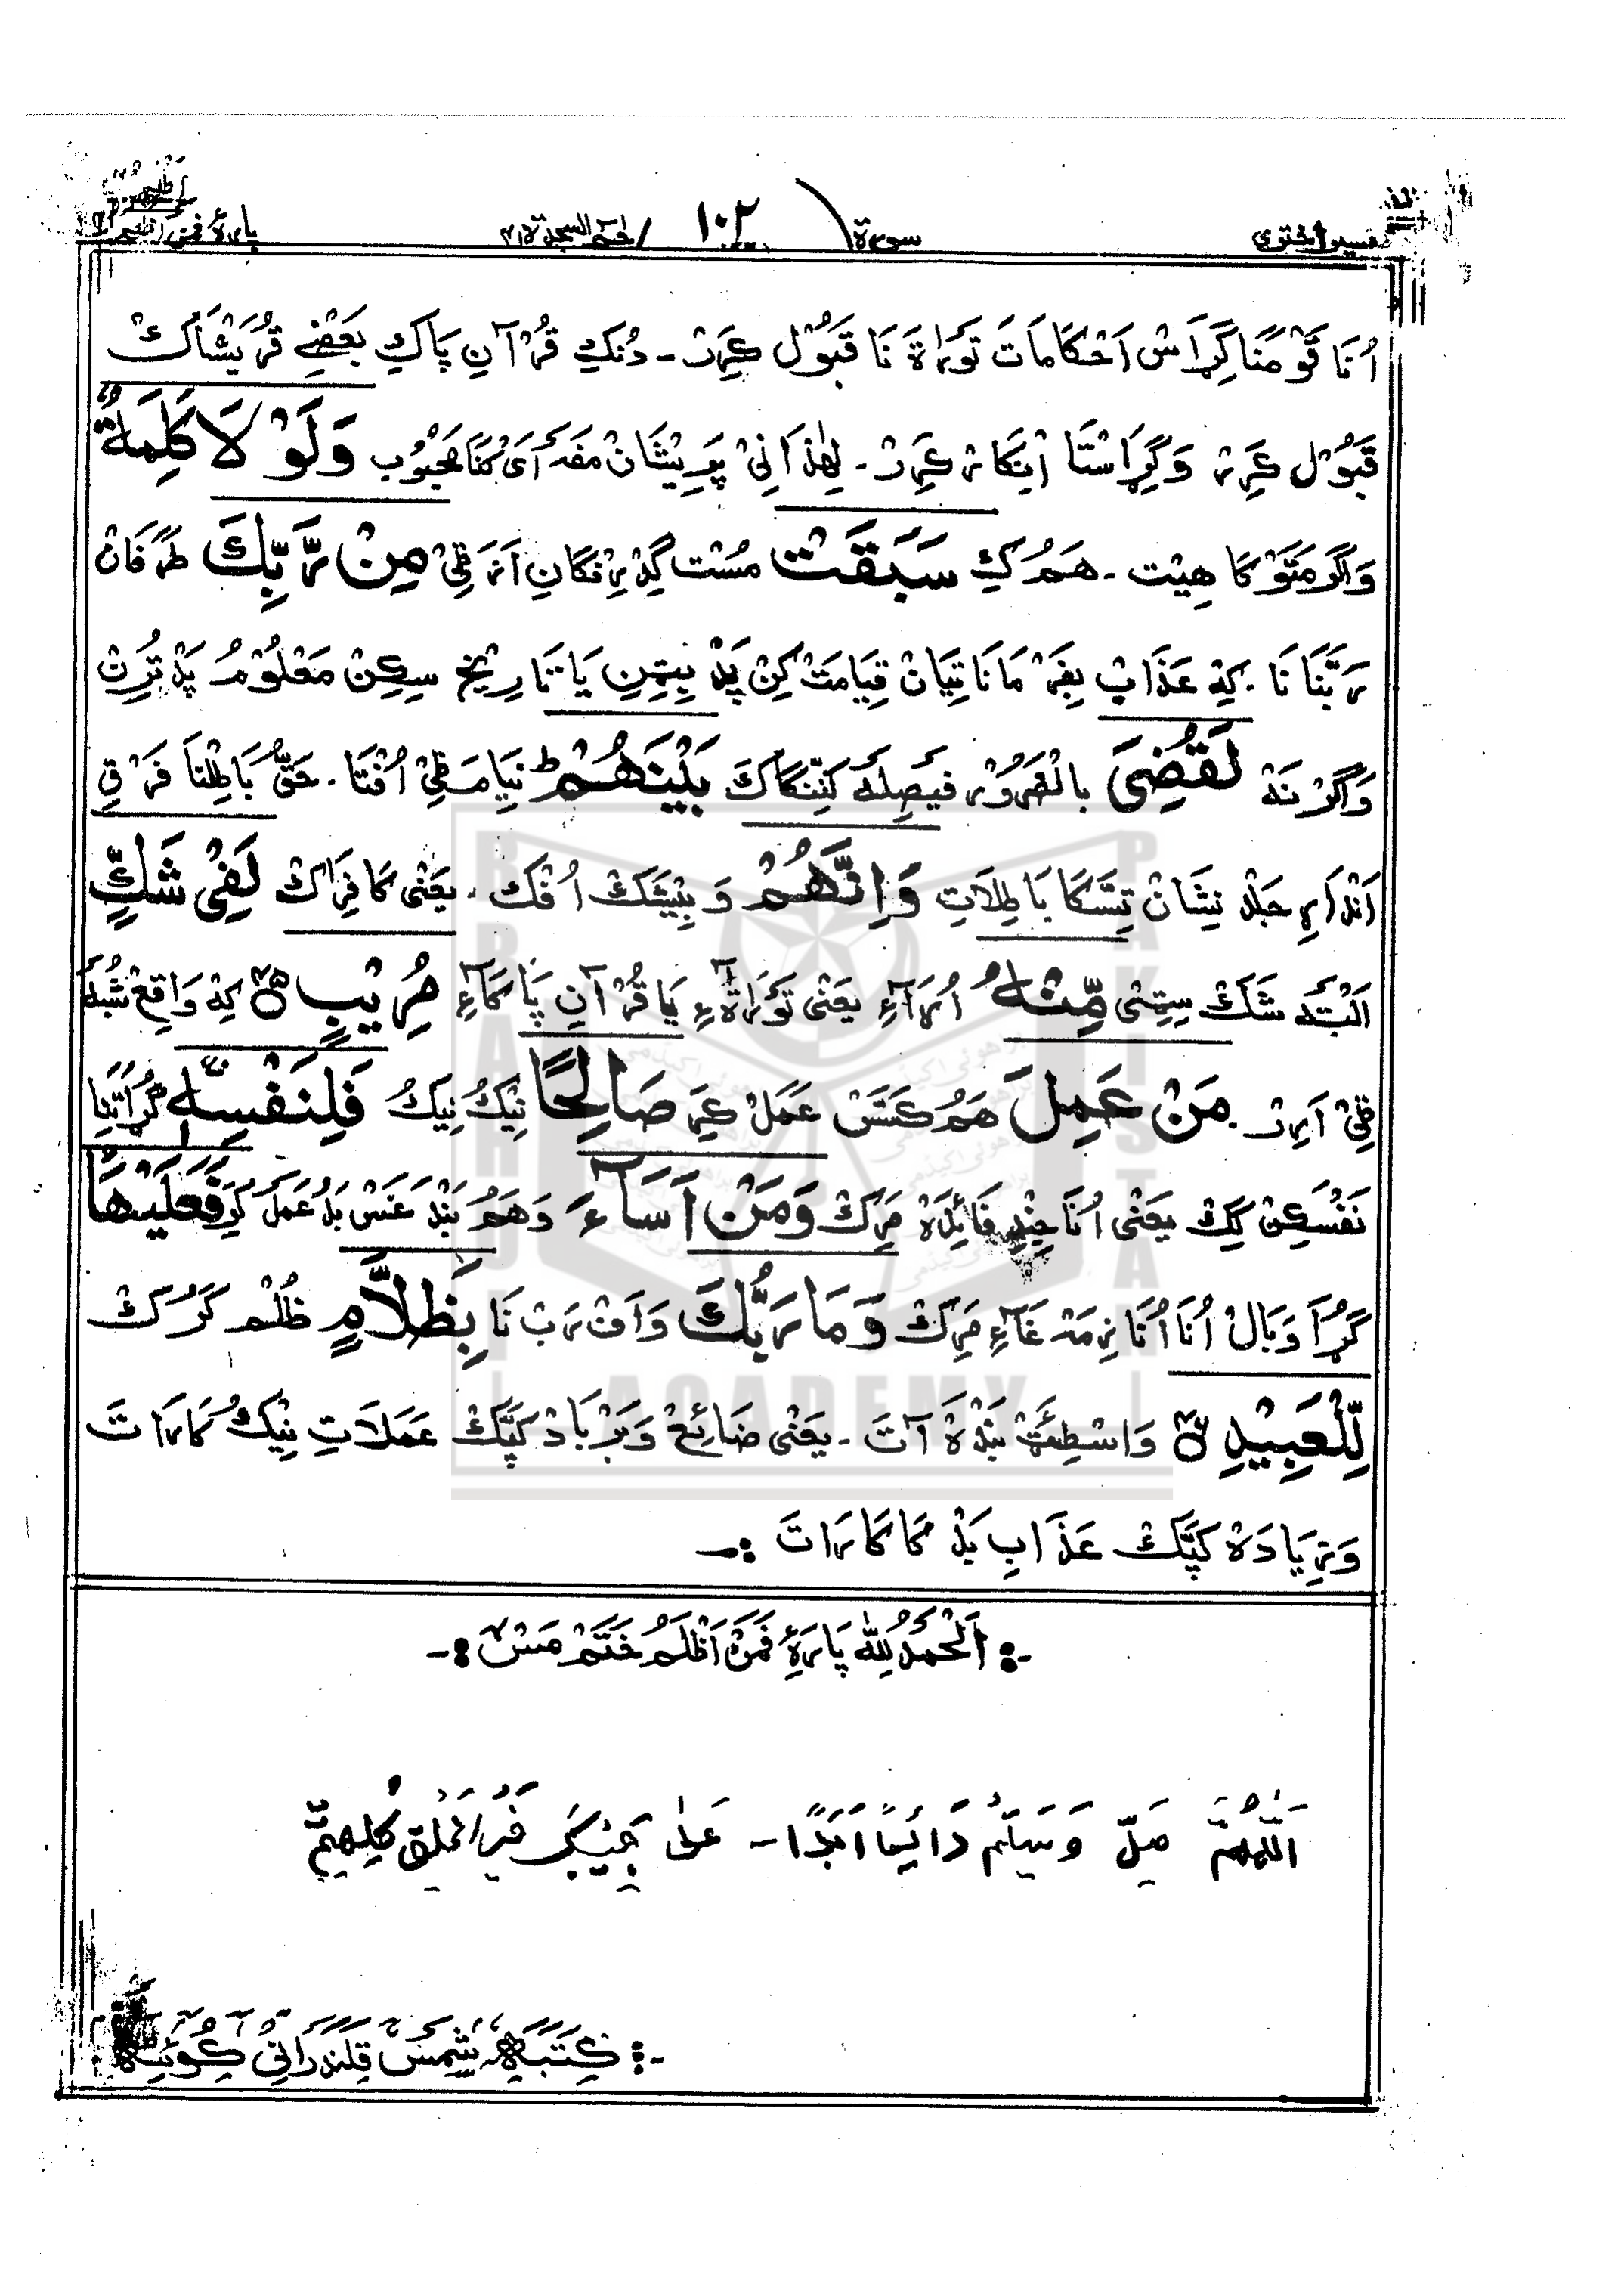 سورة ١٠٢ حٰمٓ السجدة ٤١
اُنَا قَوْمَنَا گِڑَاسْ اَحْکَامَاتَ تَوْرَاةَ نَا قَبُوْل کَرِرْ۔ دُنْکِ قُرْآنِ پَاکِ بَعْضِے قُرَیْشَاکْ
قَبُوْل کَرِرْ وَگِڑَاسْتَا اِنْکَار کَرِرْ۔ لِھٰذَا نِیْ پَرِیْشَانْ مَفَہ اَیْ کَنَا مَحْبُوْب وَلَوْ لَا کَلِمَةٌ
وَاگَر مَتَوْکَا ھِیْت۔ ھَمُرْکِ سَبَقَتْ مُسْت گِدْرِنْگَانِ اَزَ قِیْ مِنْ رَّبِّكَ طَرَفَانْ
رَبَّنَا نَا۔ کِہْ عَذَابْ بِفَرْمَانَا تِیَانْ قِیَامَتْ کِنْ پَدْ بِیْتِنِ یَا تَارِیْخِ سِکِنْ مَعْلُوْمُ پَدْ تَرِنْ
وَاگَرْنَہْ لَقُضِیَ بِالضَّرُوْر فَیْصِلَہ کَنِّنْگَاکَ بَیْنَهُمْ نِیَامَ ٹِیْ اُفْتَا۔ حَقُّ بَاطِلْنَا فَرْقِ
اَنْدَارِ جَلْد نِشَانْ تِسَّکَا بَاطِلَاتِ وَاِنَّهُمْ وَبِیْشَکْ اُفْکْ۔ یَعْنِی کَافِرَاکْ لَفِیْ شَكٍّ
اَلْبَتَّہ شَکْ سِتِیْ مِّنْهُ اُرَآءِ یَعْنِی تَوْرَاةْءِ یَا قُرْآنِ پَاکَآءِ مُرِیْبٍ ٤٥ کِہْ وَاقِعْ شُبْہُ
ٹِیْ اَرِرْ۔ مَنْ عَمِلَ ھَمُ کَسَسْ عَمَلْ کَرِ صَالِحًا نِیْکُ نِیْکُ فَلِنَفْسِهٖ گُڑَا تَنِنَا
نَفْسَکِنْ کِکْ یَعْنِی اُنَا جِنْدِ فَائِدَہْ مَرِکْ وَمَنْ اَسَآءَ وَھَمُ بَنْدَغَسْ بَدُ عَمَلْ کَرِ فَعَلَیْهَا
گُڑَا وَبَالْ اُنَا اُنَا ذِمَہ غَآءِ مَرِکْ وَمَا رَبُّكَ وَاَفْ رَبْ نَا بِظَلَّامٍ ظُلْم کَرُکْ
لِّلْعَبِیْدِ ٤٦ وَاسْطِئَٹْ بَنْدَہْ آتَ۔ یَعْنِی ضَائِعْ وَبَرْبَادْ کَپَّکْ عَمَلَاتِ نِیْکُ کَارَاتَ
وَزِیَادَہْ کَپَّکْ عَذَابِ بَدْ کَاکَارَاتَ ۔
اَلْحَمْدُ لِلّٰہ پَارَہٗ فَمَنْ اَظْلَمُ خَتَمْ مَسْ
اَللّٰهُمَّ صَلِّ وَسَلِّمْ دَائِمًا اَبَدًا۔ عَلٰی حَبِیْبِكَ خَیْرِ الْخَلْقِ کُلِّهِمْ
کَتَبَہٗ شَمْسْ قَلَنْدَرَانِیْ کُوْئِٹَہْ
BRAHUI ACADEMY PAKISTAN